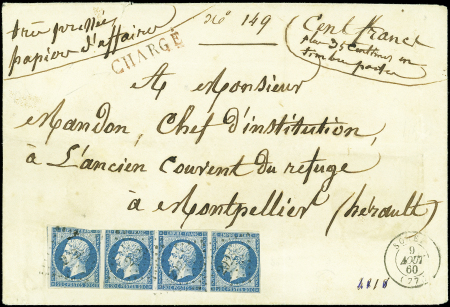 très pressée
papier d'affaire
No 149
CHARGÉ
Cent francs
plus 35 Centimes en
timbre poste
A Monsieur
Mandon, Chef d'institution,
à L'ancien couvent du refuge
à Montpellier (hérault)
9
AOUT
60